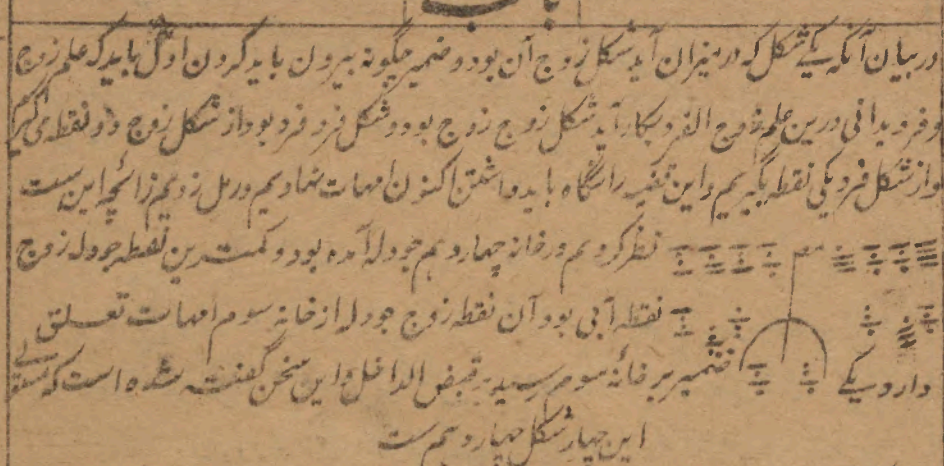 باب
در بیان آنکه یکے شکل که در میزان آید شکل زوج آن بود و ضمیر چگونه بیرون باید کردن اول باید که علم زوج
و فرد بدانی درین علم زوج الفرد بکار آید شکل زوج زوج بود و شکل فرد فرد بود از شکل زوج دو نقطه می گیریم
و از شکل فرد یکی نقطه بگیریم و این تفسیر را نگاه باید داشتن اکنون امهات نهادیم و رمل زدیم زائچه این ست
نظر کردیم در خانه چهاردهم جودله آمده بود و کمترین نقطه جودله زوج
نقطه آبی بود آن نقطه زوج جودله از خانه سوم امهات تعلق
دارد یکے ضمیر بر خانه سوم رسید بر قبض الداخل و این سخن گفته شده است که
این چهار شکل چهاردهم ست